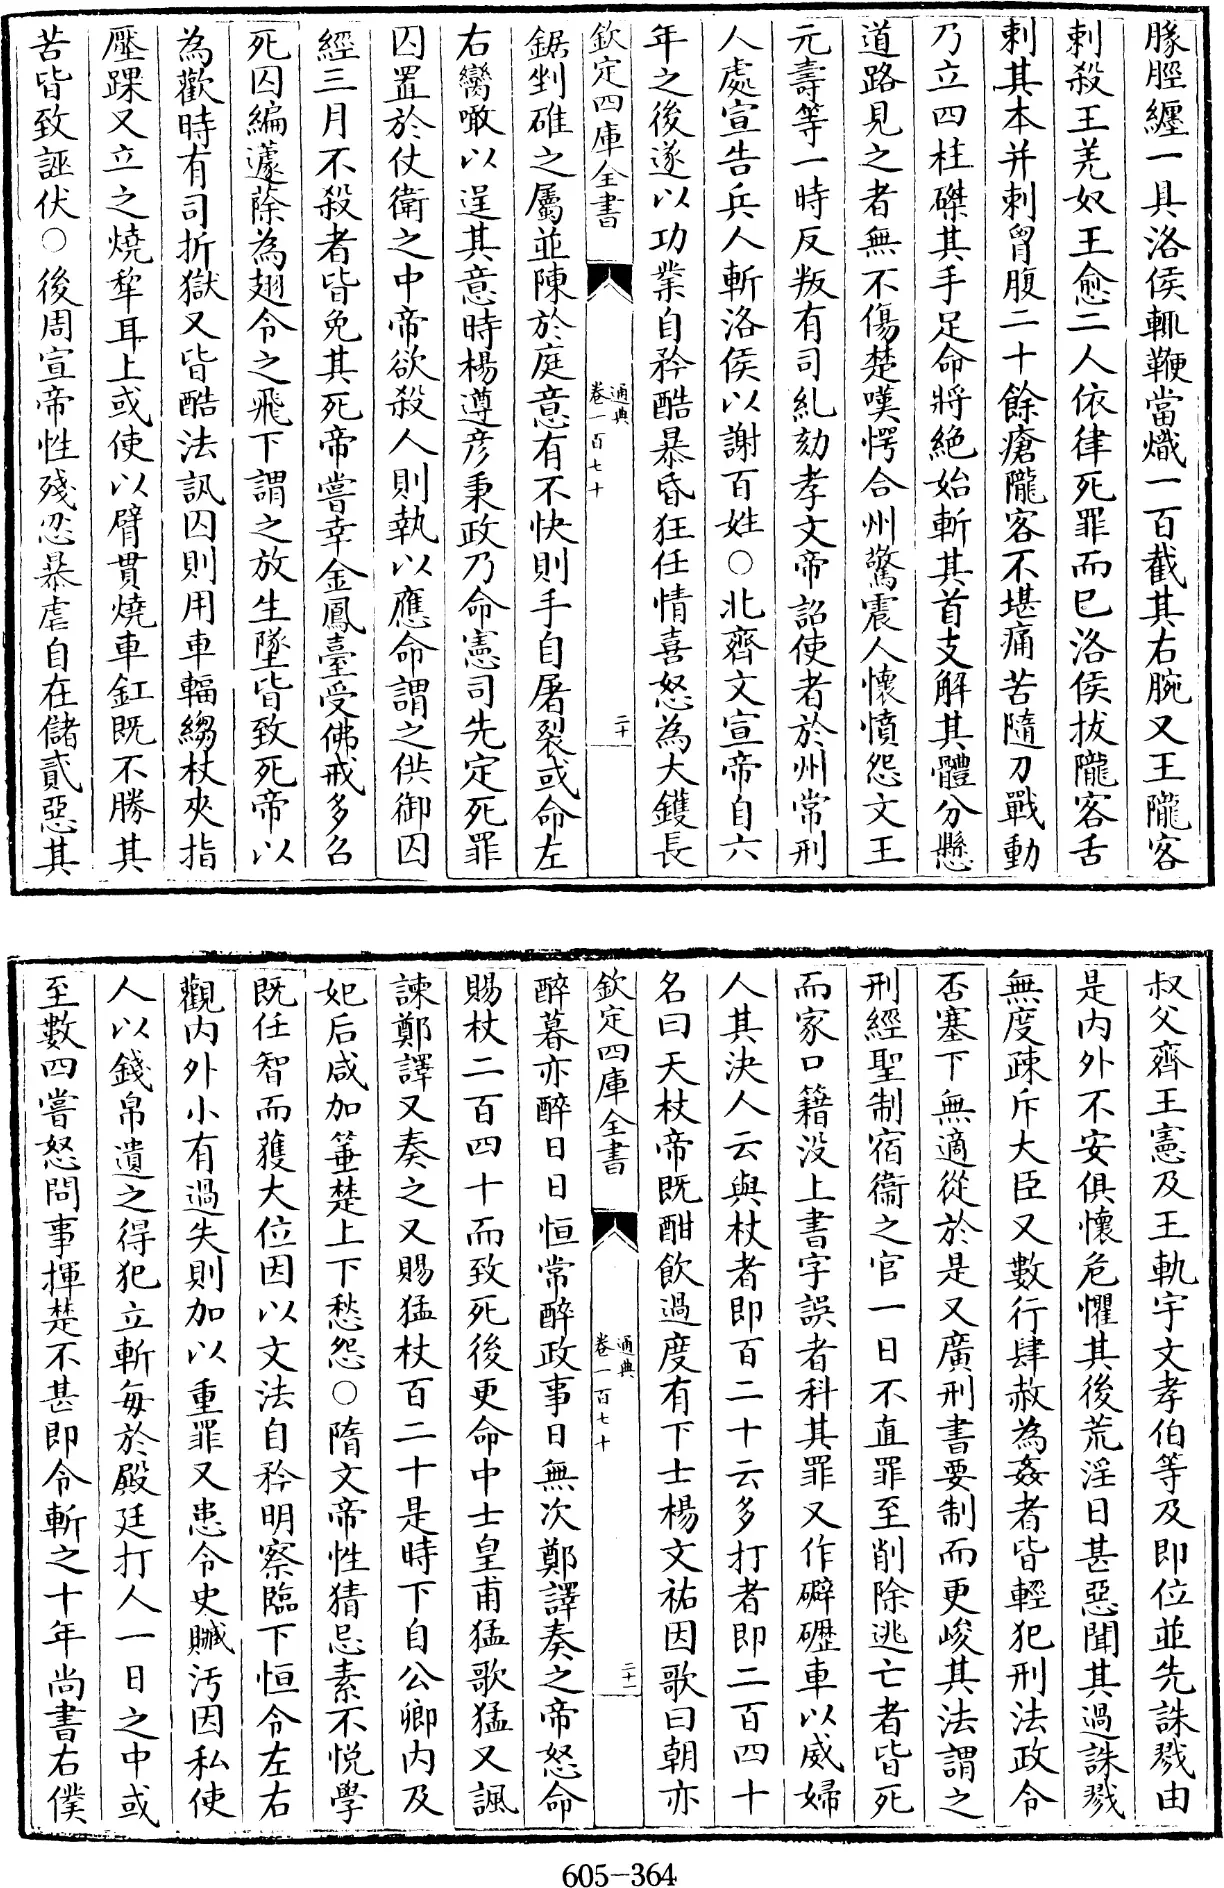 腞脛纒一具洛侯輒鞭當熾一百截其右腕又王隴客
刺殺王羌奴王愈二人依律死罪而巳洛侯拔隴客舌
刺其本并刺胷腹二十餘瘡隴客不堪痛苦隨刀戰動
乃立四柱磔其手足命將絶始斬其首支解其體分懸
道路見之者無不傷楚嘆愕合州驚震人懷憤怨文王
元壽等一時反叛有司糺劾孝文帝詔使者於州常刑
人處宣告兵人斬洛侯以謝百姓○北齊文宣帝自六
年之後遂以功業自矜酷暴昏狂任情喜怒為大鑊長
欽定四庫全書
通典
卷一百七十
二十
鋸剉碓之屬並陳於庭意有不快則手自屠裂或命左
右臠噉以逞其意時楊遵彦秉政乃命憲司先定死罪
囚置於仗衛之中帝欲殺人則執以應命謂之供御囚
經三月不殺者皆免其死帝嘗幸金鳳臺受佛戒多召
死囚編籧蒢為翅令之飛下謂之放生墜皆致死帝以
為歡時有司折獄又皆酷法訊囚則用車輻䅳杖夾指
壓踝又立之燒犂耳上或使以臂貫燒車釭既不勝其
苦皆致誣伏○後周宣帝性殘忍暴虐自在儲貳惡其
叔父齊王憲及王軌宇文孝伯等及即位並先誅戮由
是内外不安俱懷危懼其後荒淫日甚惡聞其過誅戮
無度疎斥大臣又數行肆赦為姦者皆輕犯刑法政令
否塞下無適從於是又廣刑書要制而更峻其法謂之
刑經聖制宿衞之官一日不直罪至削除逃亡者皆死
而家口籍没上書字誤者科其罪又作礔礰車以威婦
人其決人云與杖者即百二十云多打者即二百四十
名曰天杖帝既酣飲過度有下士楊文祐因歌曰朝亦
欽定四庫全書
通典
卷一百七十
二十一
醉暮亦醉日日恒常醉政事日無次鄭譯奏之帝怒命
賜杖二百四十而致死後更命中士皇甫猛歌猛又諷
諫鄭譯又奏之又賜猛杖百二十是時下自公卿内及
妃后咸加箠楚上下愁怨○隋文帝性猜忌素不悦學
既任智而獲大位因以文法自矜明察臨下恒令左右
觀内外小有過失則加以重罪又患令史贓汚因私使
人以錢帛遺之得犯立斬每於殿廷打人一日之中或
至數四嘗怒問事揮楚不甚即令斬之十年尚書右僕
605-364